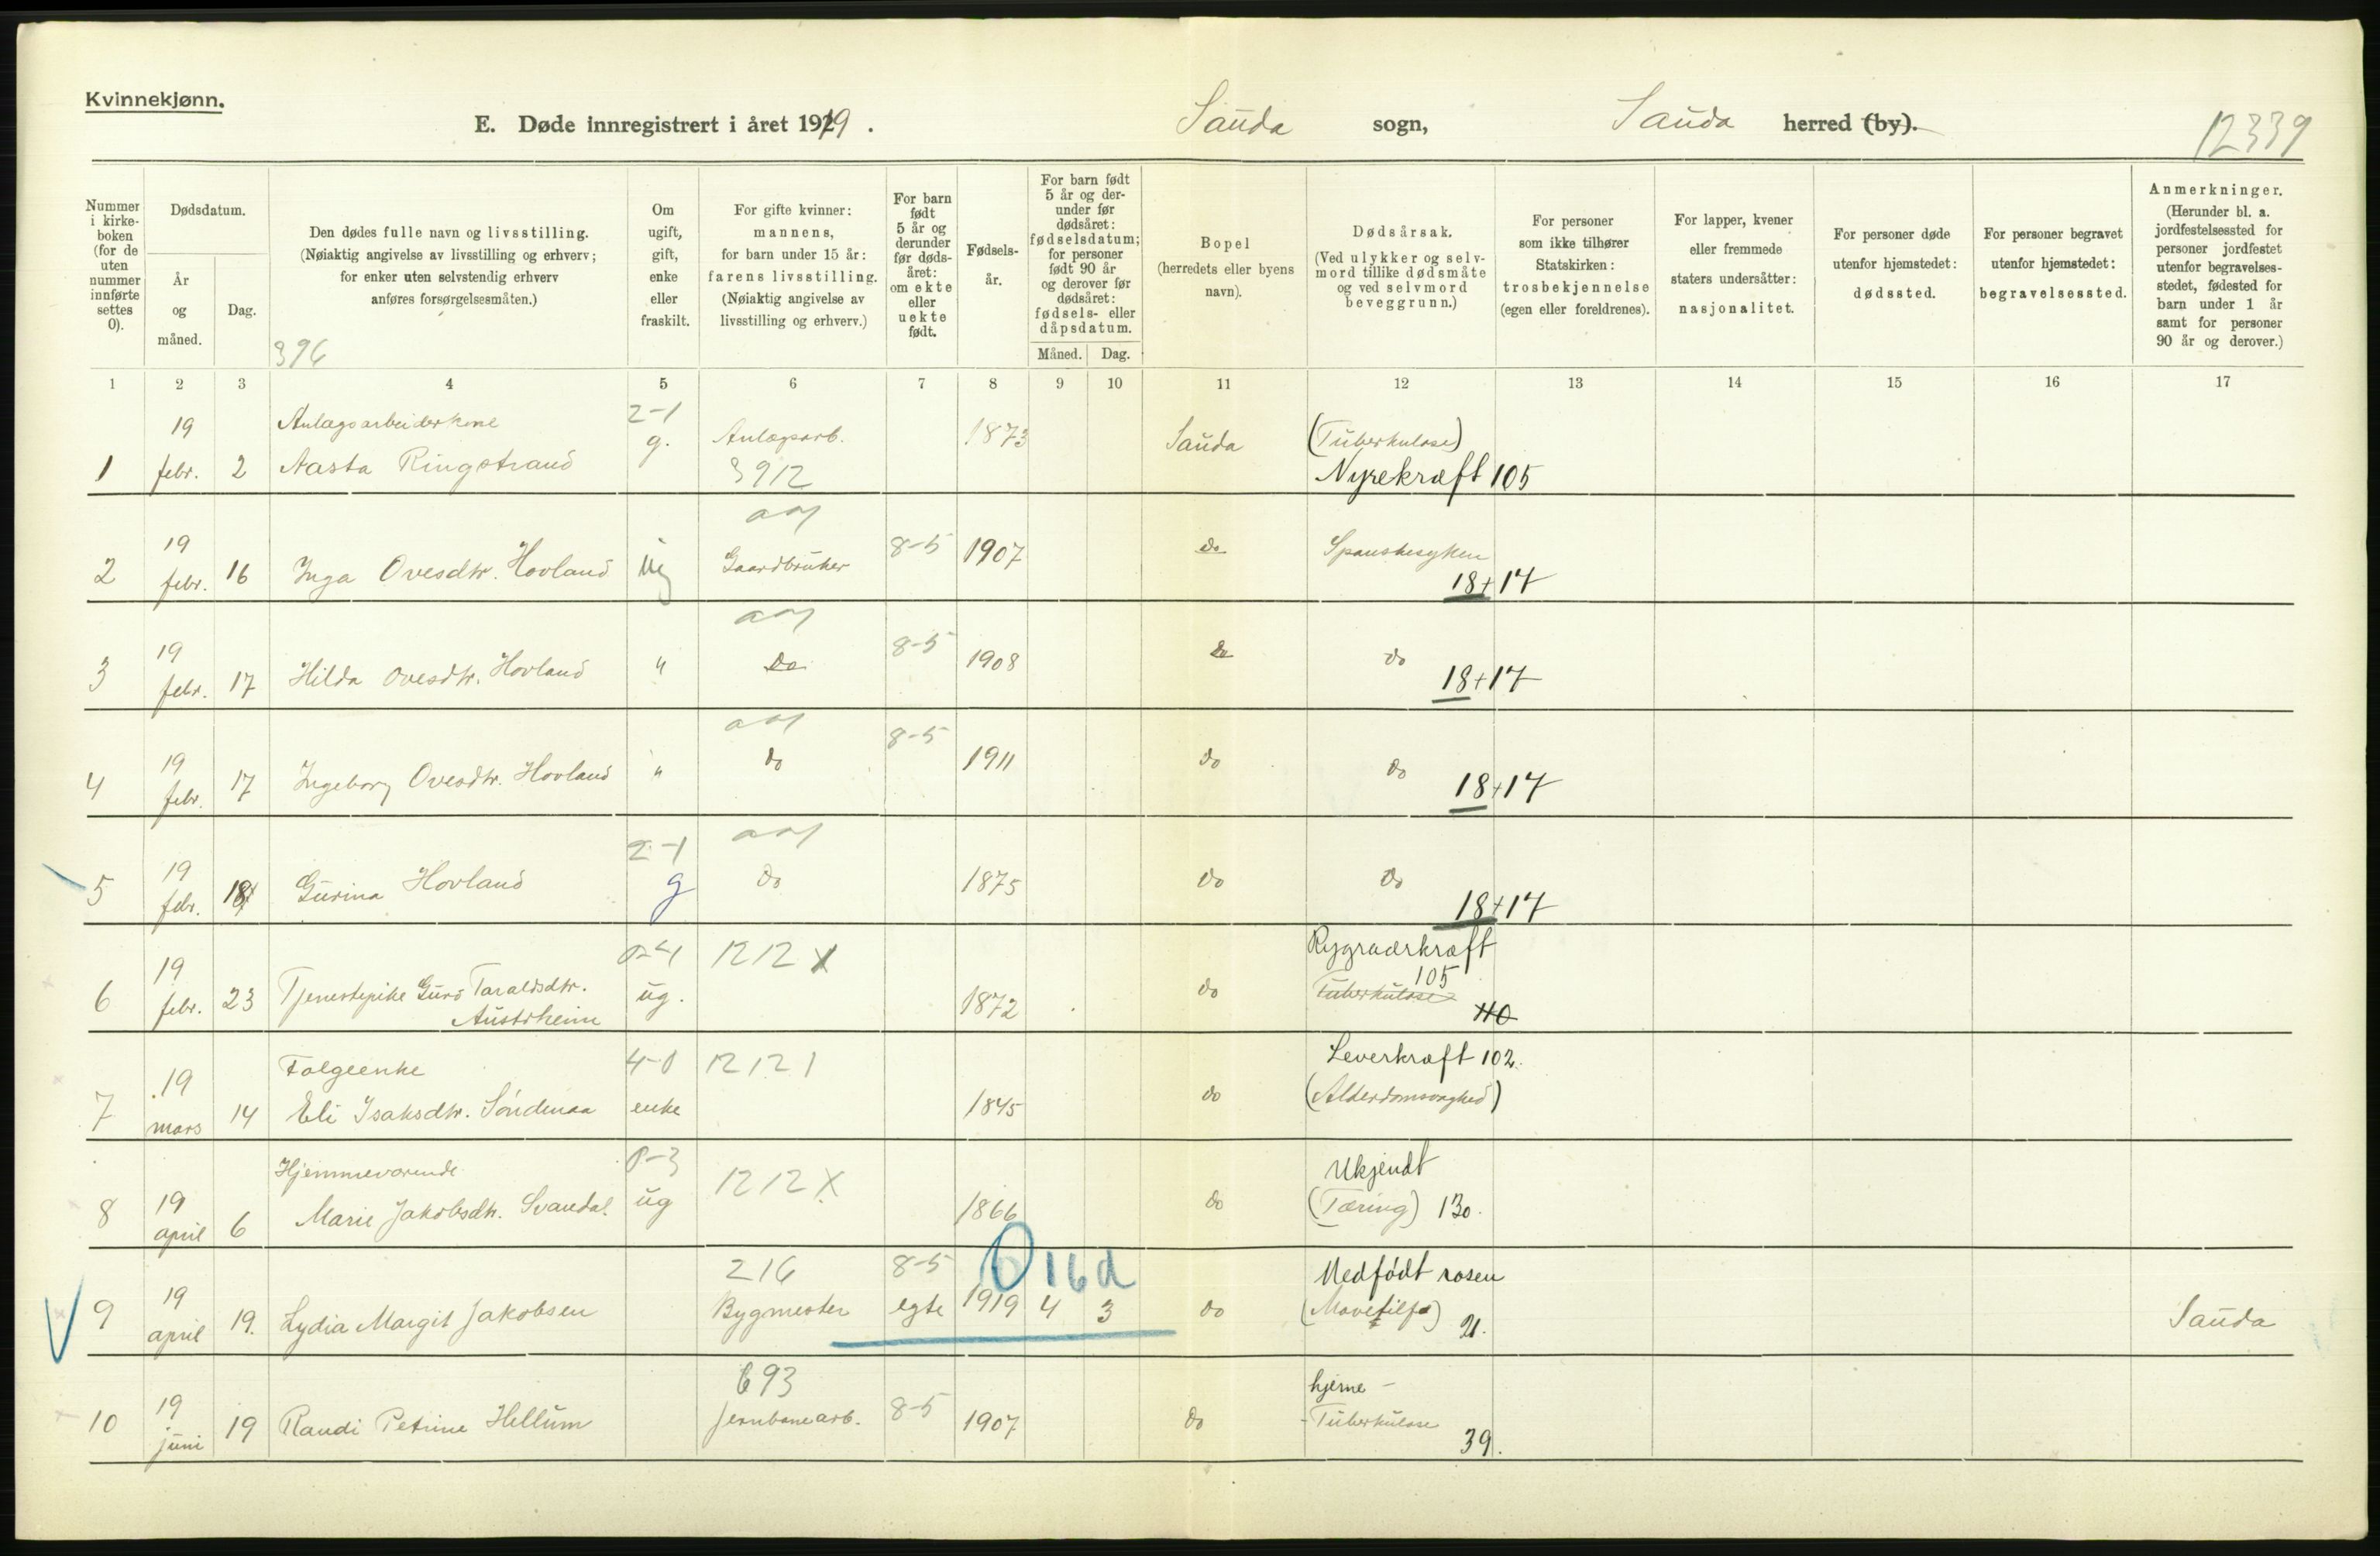 Kvinnekjønn.
E. Døde innregistrert i året 1919. Sauda sogn, Sauda herred (by).
12339
Nummer i kirkeboken (for de uten nummer innførte settes 0).
Dødsdatum.
År og måned.
Dag.
Den dødes fulle navn og livsstilling. (Nøiaktig angivelse av livsstilling og erhverv; for enker uten selvstendig erhverv anføres forsørgelsesmåten.)
396
Om ugift, gift, enke eller fraskilt.
For gifte kvinner: mannens, for barn under 15 år: farens livsstilling. (Nøiaktig angivelse av livsstilling og erhverv.)
For barn født 5 år og derunder før dødsåret: om ekte eller uekte født.
Fødselsår.
For barn født 5 år og derunder før dødsåret: fødselsdatum; for personer født 90 år og derover før dødsåret: fødsels- eller dåpsdatum.
Måned. Dag.
Bopel (herredets eller byens navn).
Dødsårsak. (Ved ulykker og selvmord tillike dødsmåte og ved selvmord beveggrunn.)
For personer som ikke tilhører Statskirken: trosbekjennelse (egen eller foreldrenes).
For lapper, kvener eller fremmede staters undersåtter: nasjonalitet.
For personer døde utenfor hjemstedet: dødssted.
For personer begravet utenfor hjemstedet: begravelsessted.
Anmerkninger. (Herunder bl. a. jordfestelsessted for personer jordfestet utenfor begravelsesstedet, fødested for barn under 1 år samt for personer 90 år og derover.)
1 2 3 4 5 6 7 8 9 10 11 12 13 14 15 16 17
19 Anlægsarbeiderkone 2-1 g. Anlægsarb. 1873 Sauda (Tuberkulose)
1 febr. 2 Aasta Ringstrand 3912 Nyrekræft 105
19 8-5 1907 do Spanskesyken
2 febr. 16 Inga Ovesdtr. Hovland ug Gaardbruker 18+17
19 8-5 1908 do do
3 febr. 17 Hilda Ovesdtr. Hovland " Do 18+17
19 8-5 1911 do do
4 febr. 17 Ingeborg Ovesdtr. Hovland " do 18+17
19 2-1 1875 do do
5 febr. 18 Gurina Hovland g do 18+17
19 1212 X Rygradskræft 105
6 febr. 23 Tjenestepike Guro Taraldsdtr. Austrheim ug. 1872 do Tuberkulose 40
19 Folgeenke 4-0 1212 1 Leverkræft 102.
7 mars 14 Eli Isaksdtr. Söndenaa enke 1845 do (Alderdomsvaghed)
Hjemmeværende 0-3 1212 X Ukjendt
8 19 april 6 Marie Jakobsdtr. Svandal. ug 1866 do (Tæring) 130.
216 8-5 0 16 d Medfødt rosen
9 19 april 19. Lydia Margit Jakobsen Bygmester egte 1919 4 3 do 21. Sauda
693 hjerne-
10 19 juni 19 Randi Petrine Hellum Jernbanearb. 8-5 1907 do -Tuberkulose 39.